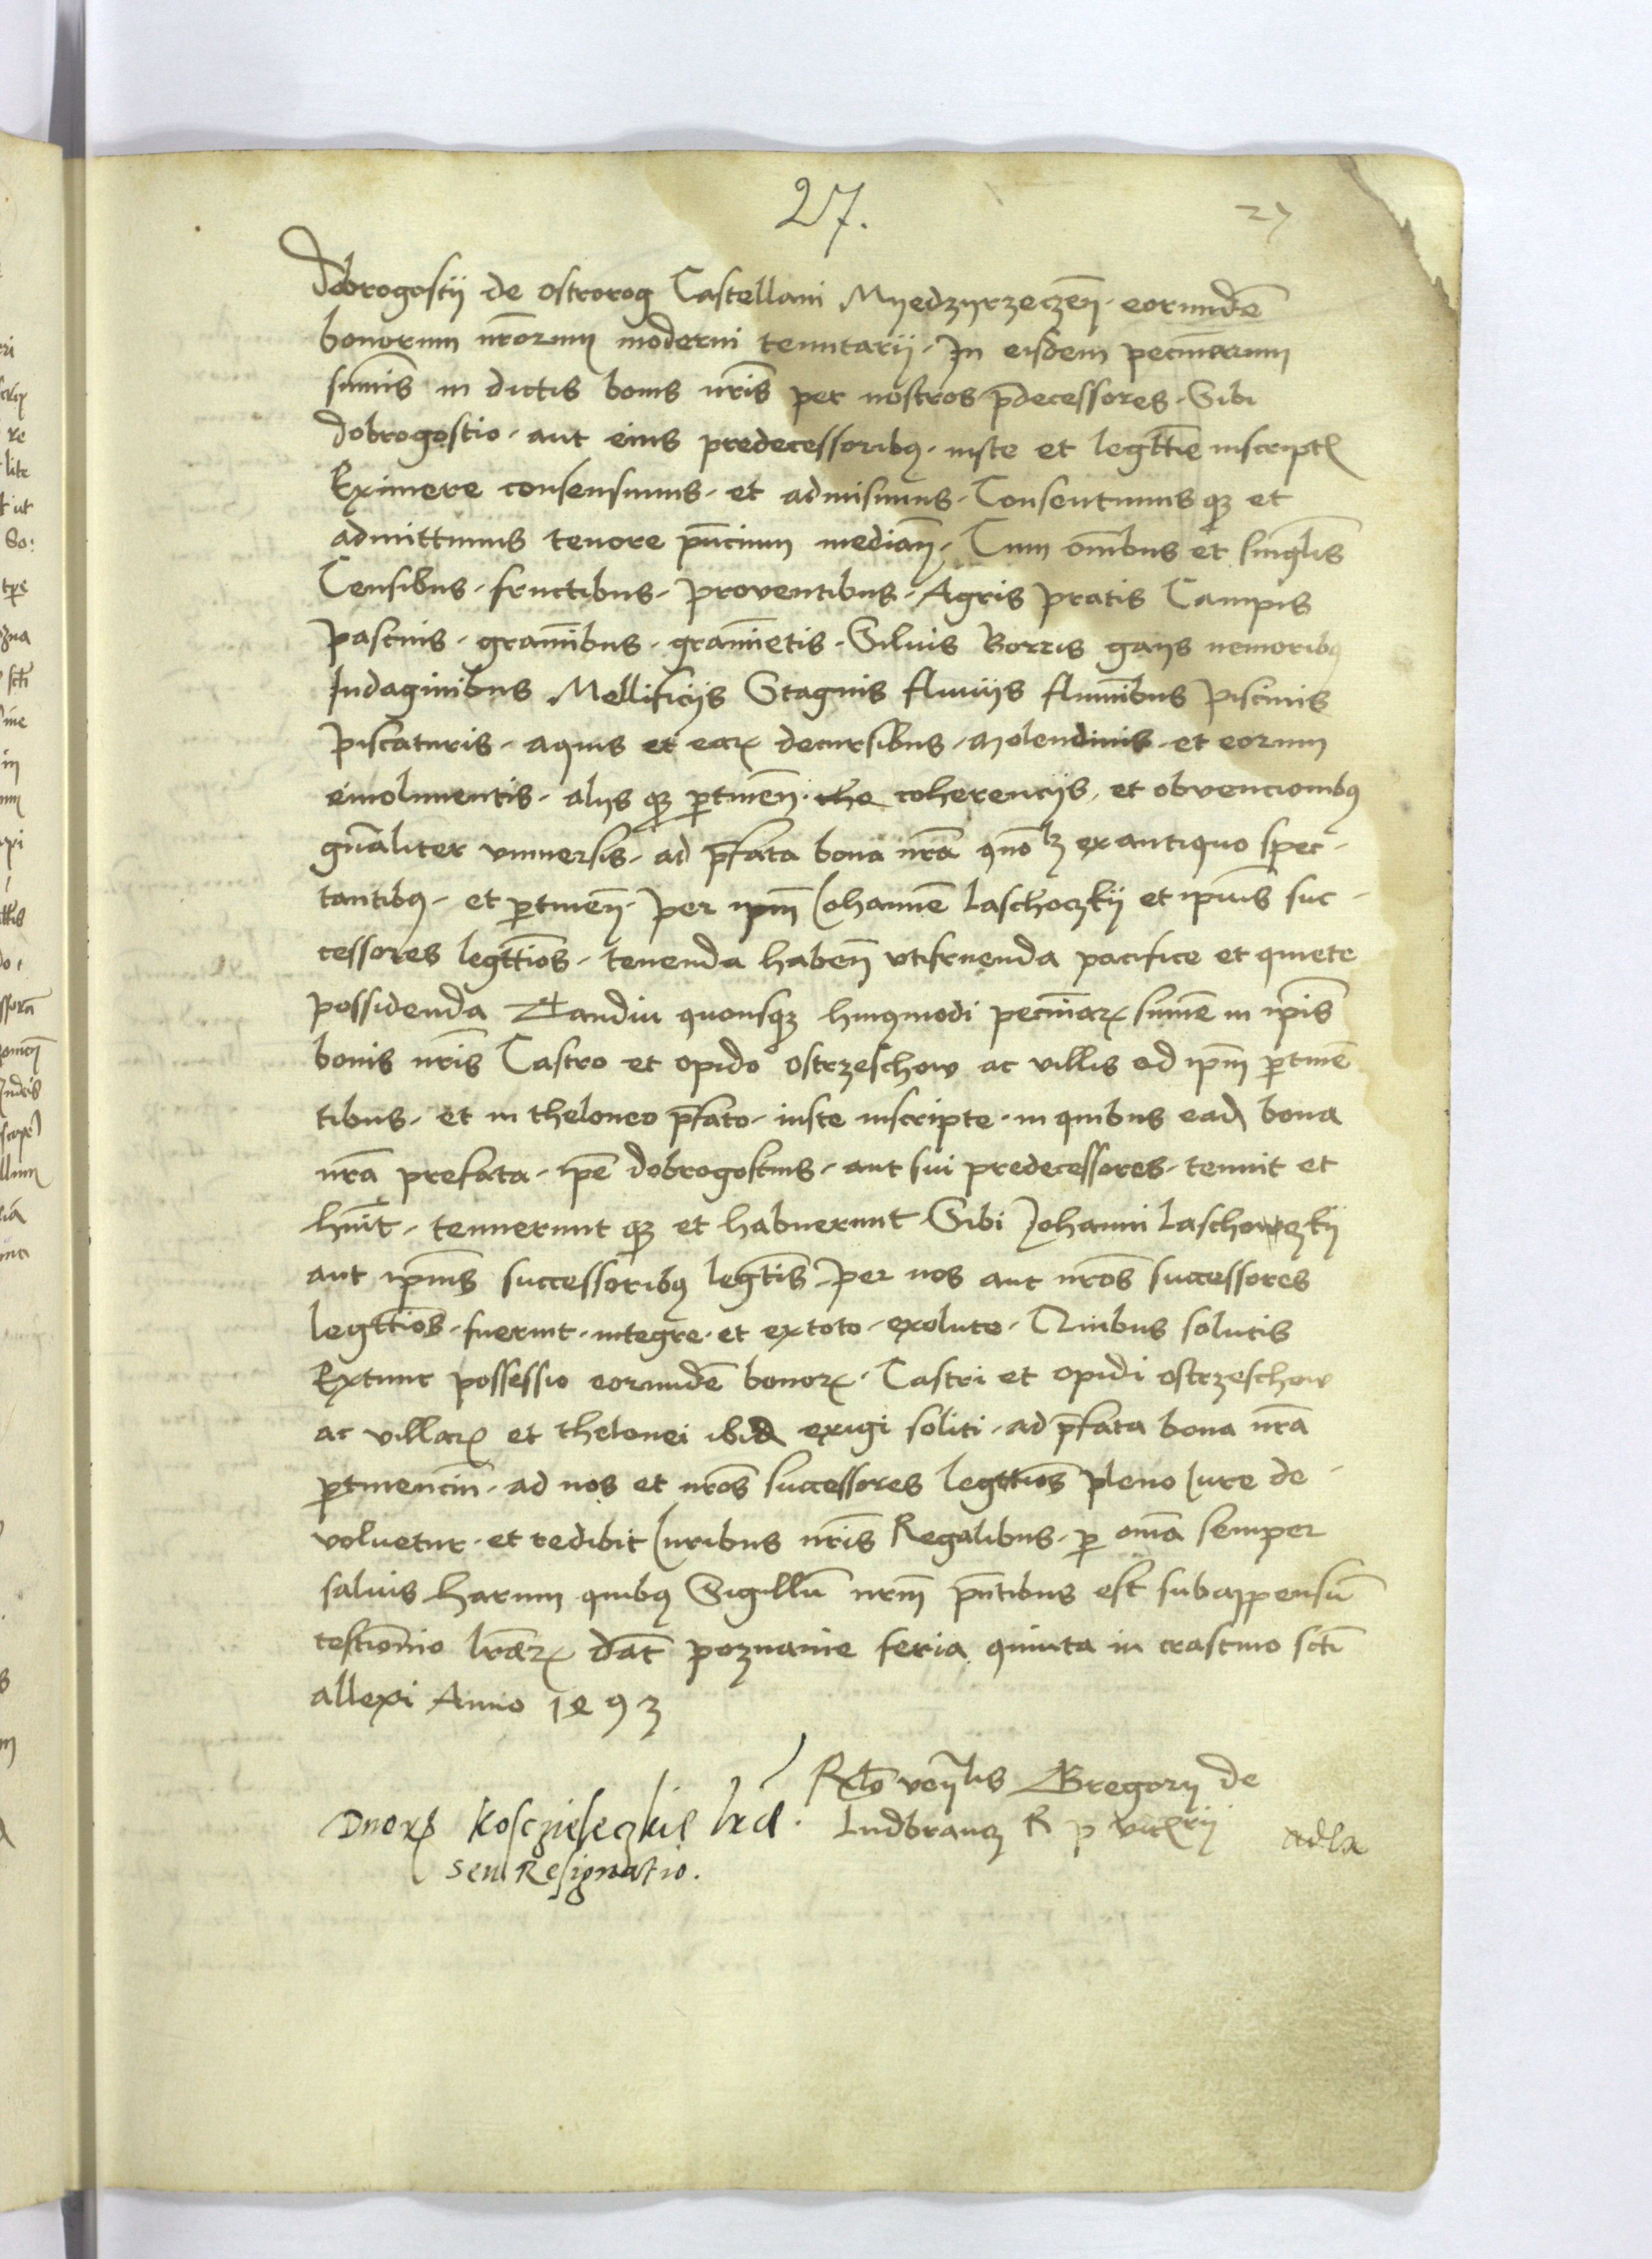 27.
27
Dobrogostii de ostrorog Castellani Myedzyrzeczeñ. eorundē
bonorum nr̄orum moderni tenutarii. In eisdem pecuniarum
summis in dictis bonis nr̄is per nostros p̄decessores. Sibi
dobrogostio. aut eius predecessoribꝫ. iuste et legitt̄ie inscriptꝭ
Eximere consensimus. et admisimus. Consentimus qꝫ et
admittimus tenore pn̄cium median̄. Cum om̄ibus et singl̄is
Censibus. fructibus. proventibus. Agris pratis Campis
pascuis. gram̄ibus. gram̄ietis. Siluis Borris gays nemoribꝫ
Indaginibus Mellificiis Stagnis fluuiis flum̄ibus piscinis
piscaturis. aquis et eaꝝ decursibus. molendinis. et eorum
emolumentis. aliis qꝫ ꝑtinen̄. coherenciis. et obvencionibꝫ
gn̄aliter vniuersis. ad p̄fata bona nr̄a quōlꝫ ex antiquo spec-
tantibꝫ. et ꝑtinen̄. per ip̄m Johannē Laschoczkii et ip̄ius suc-
cessores legitt̄ios. tenenda haben̄ vtifruenda pacifice et quiete
possidenda Tandiu quousqꝫ huiꝰmodi pecuniaꝝ sum̄e in ip̄is
bonis nr̄is Castro et opido ostrzeschow ac villis ad ip̄m ꝑtinē
tibus. et in theloneo p̄fato. iuste inscripte. in quibus eaď bona
nr̄a prefata. ip̄e dobrogostius. aut sui predecessores. tenuit et
huīt. tenuerunt qꝫ et habuerunt Sibi Johanni Laschowczkii
aut ip̄ius successoribꝫ legitt̄is per nos aut nr̄os successores
legitt̄ios. fuerint. integre. et ex toto. exolute. Quibus solutis
Extunc possessio eorundē bonoꝝ. Castri et opidi ostrzeschow
ac villaꝝ et thelonei ibiď exigi soliti. ad p̄fata bona nr̄a
ꝑtinenciū. ad nos et nr̄os successores legittīos pleno Jure de-
voluetur. et redibit Juribus nr̄is Regalibus. ꝑ om̄a semper
saluis Harum quibꝫ Sigillū nr̄m pn̄tibus est subappensū
testimōio lr̄aꝝ dat̄ poznanie feria quinta in crastino sct̄i
allexi Anno 1493
Rlo ven̄lis Gregorii de
Dnoꝝ Kosczieleczkie lr̄a. Ludbrancz R p vicꝝrii
adla
seu Resignatio.